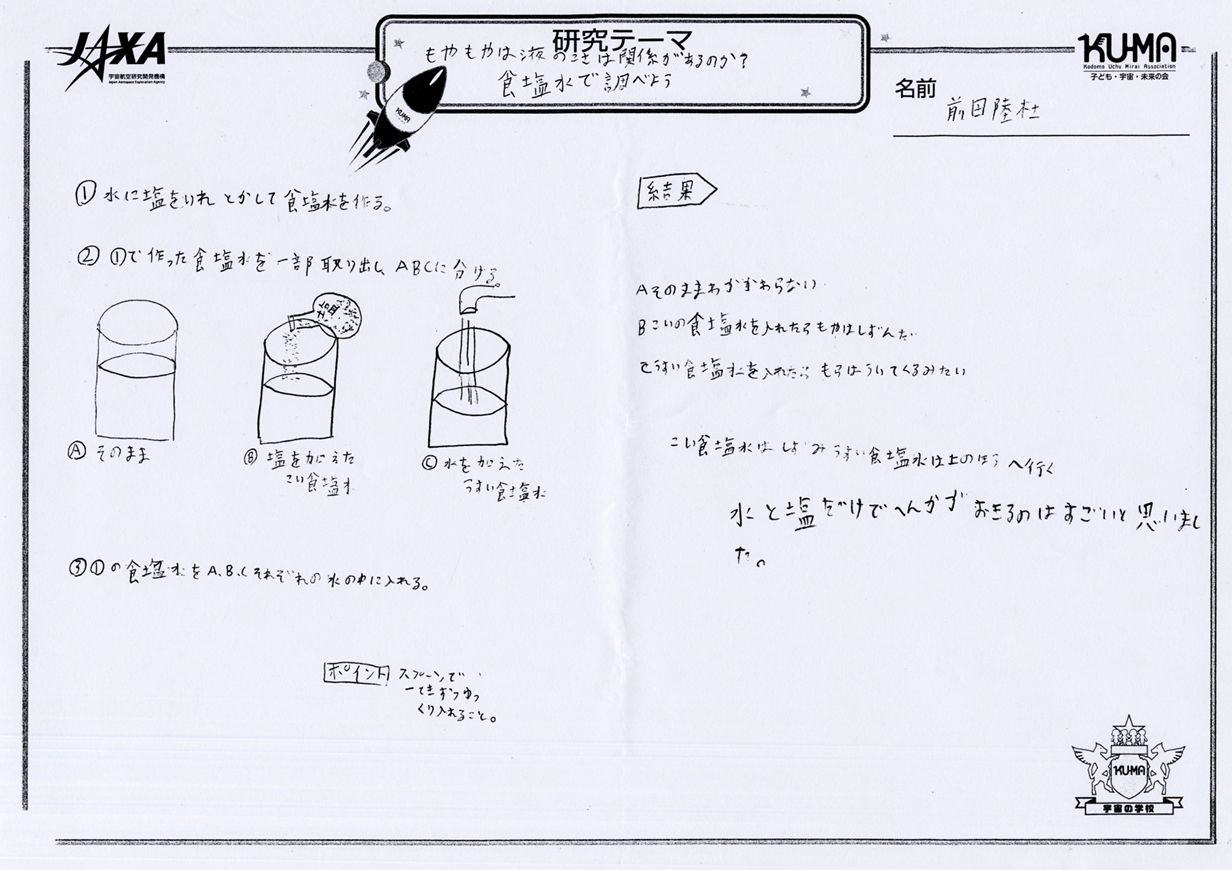 JAXA
宇宙航空研究開発機構
Japan Aerospace Exploration Agency
研究テーマ
もやもやは液のこさは関係があるのか?
食塩水で調べよう
KUMA
KU-MA
Kodomo Uchu Mirai Association
子ども・宇宙・未来の会
名前
前田陸杜
① 水に塩をいれ とかして 食塩水を作る。
② ①で作った食塩水を一部取り出し ABCに分ける。
塩
Ⓐ そのまま
Ⓑ 塩をがえた
こい食塩水
Ⓒ 水をがえた
うすい食塩水
③①の食塩水をA、B、Cそれぞれの水の中に入れる。
ポイント スプーンで
一てきずつゆっ
くり入れること。
結果
Aそのままわかずわらない
Bこいの食塩水を入れたらもやはしずんだ
Cうすい食塩水を入れたら もやはういてくるみたい
こい食塩水は しずみ うすい食塩水は上のほうへ行く
水と塩だけでへんかがおきるのはすごいと思いまし
た。
KU-MA
宇宙の学校